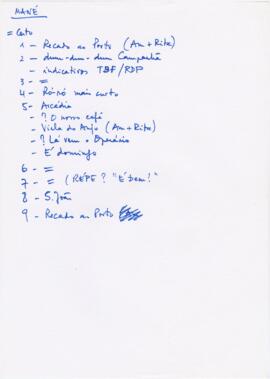 MANÉ
= Certo
1 - Recado ao Porto (Am + Rita)
2 - dum-dum-dum Campanhã
- indicativos TDF/RDP
3 - =
4 - Ró-ró mais curto
5 - Arcádia
- ? O nosso café
- Viela do Anjo (Am + Rita)
- ? Lá vem o Operário
- É domingo
6 - =
7 - = (REPE ? "É bem!"
8 - S. João
9 - Recado ao Porto